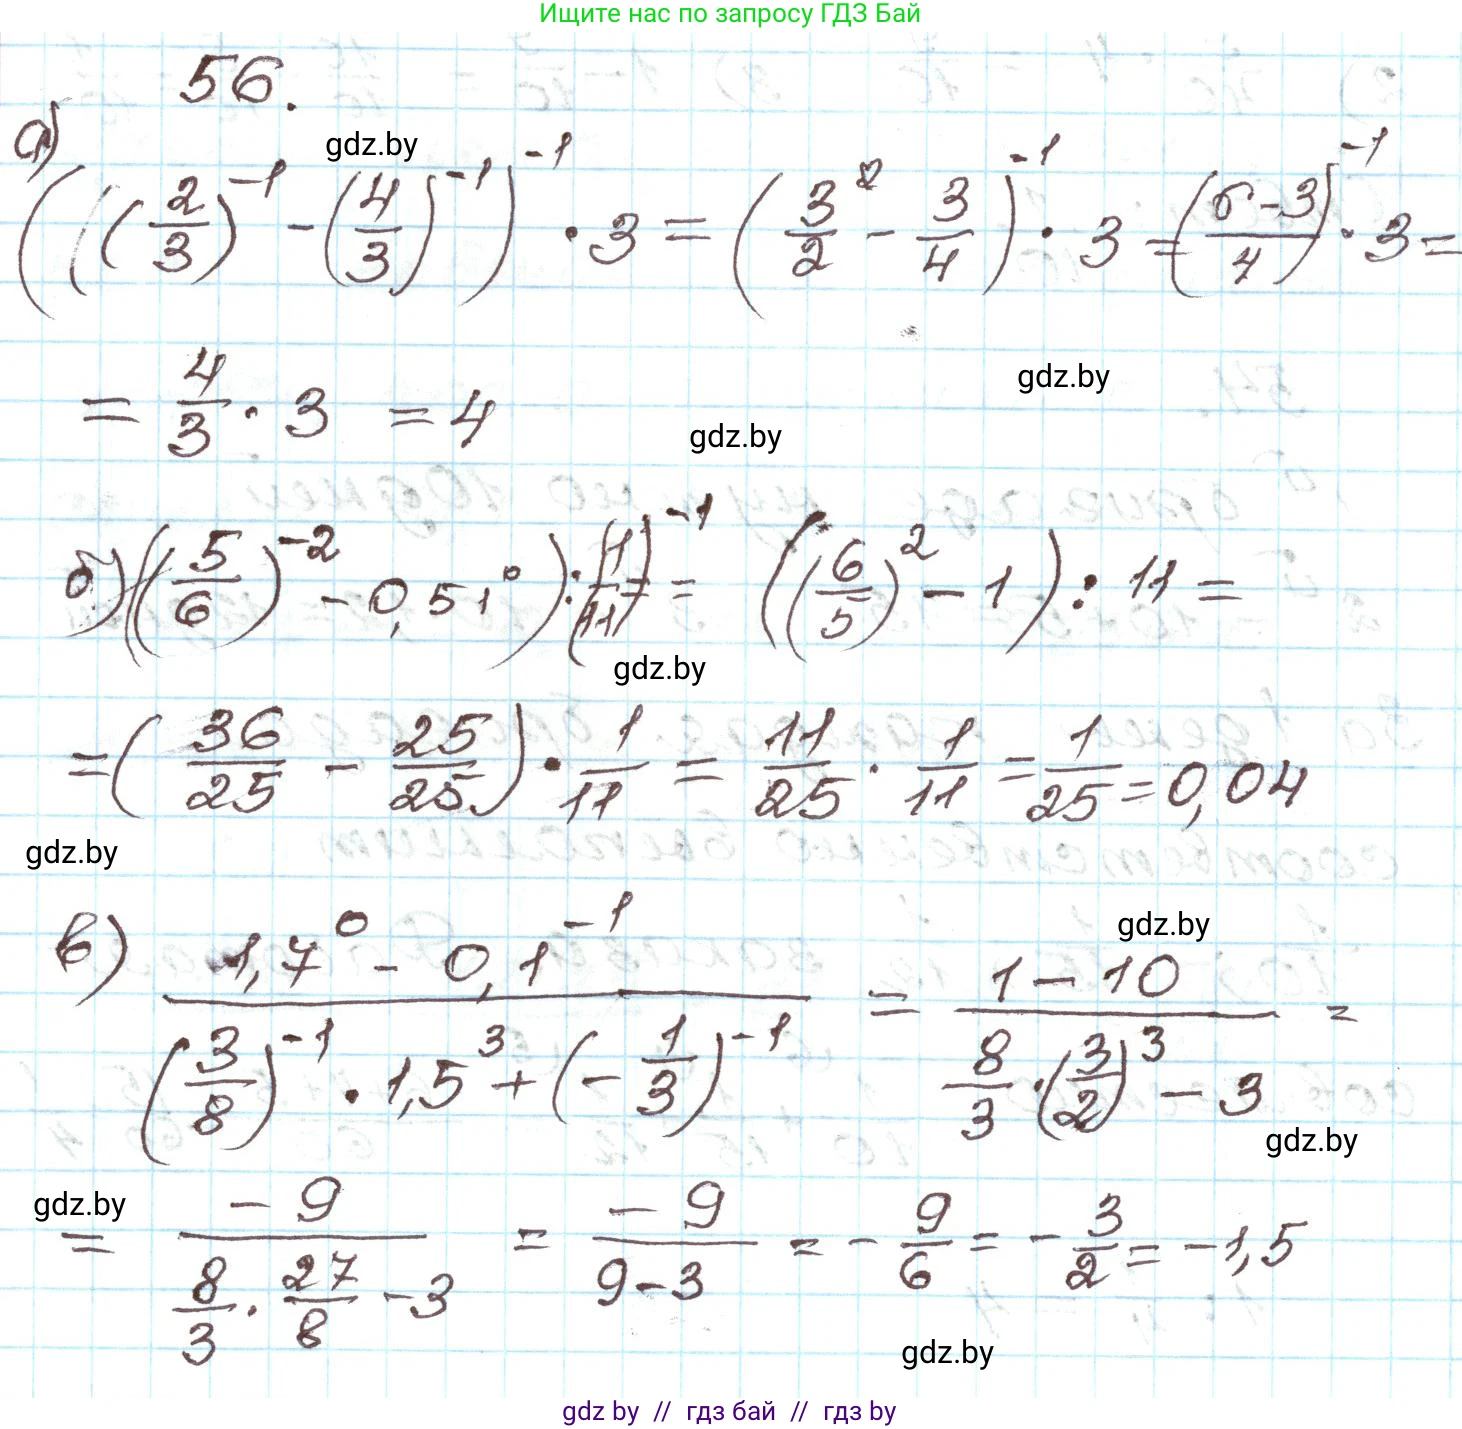 Ищите нас по запросу ГДЗ Бай
56.
gdz.by
а) (((2/3)^-1 - (4/3)^-1)^-1 · 3 = (3/2 - 3/4)^-1 · 3 = ((6-3)/4)^-1 · 3 =
gdz.by
= 4/3 · 3 = 4
gdz.by
б) ((5/6)^-2 - 0,51^0) : (1/11)^-1 = ((6/5)^2 - 1) : 11 =
gdz.by
= (36/25 - 25/25) · 1/11 = 11/25 · 1/11 = 1/25 = 0,04
gdz.by
gdz.by
в) (1,7^0 - 0,1^-1) / ((3/8)^-1 · 1,5^3 + (-1/3)^-1) = (1 - 10) / (8/3 · (3/2)^3 - 3) =
gdz.by
gdz.by
= -9 / (8/3 · 27/8 - 3) = -9 / (9-3) = -9/6 = -3/2 = -1,5
gdz.by
gdz by // гдз бай // гдз by